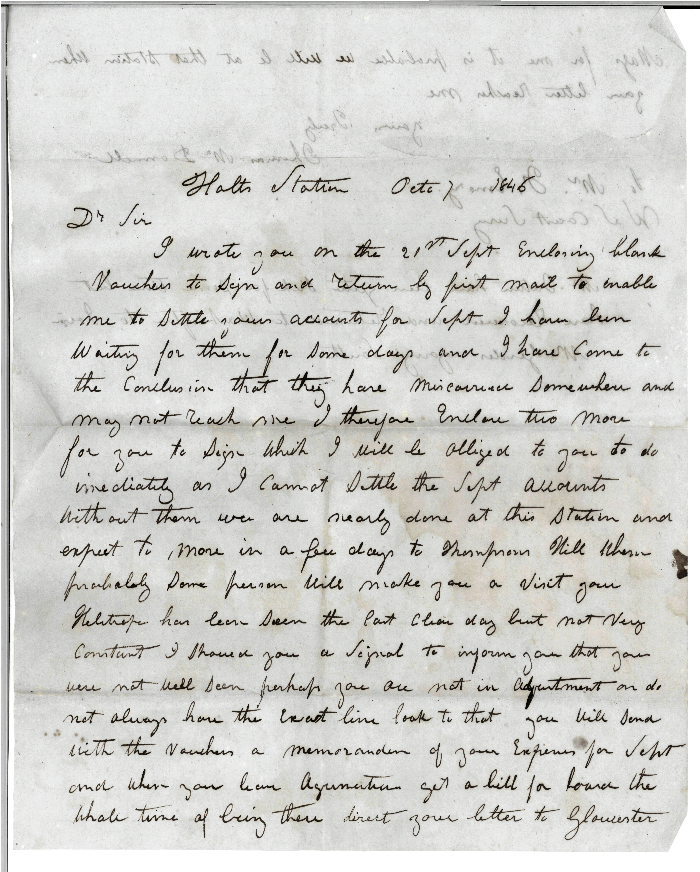 Holts Station Octo 7 1846
Dr Sir
I wrote you on the 21st Sept Enclosing blank
Vouchers to Sign and return by first mail to enable
me to Settle yours accounts for Sept I have been
Waiting for them for Some days and I have Come to
the Conclusion that they have miscarried Somewhere and
may not reach me I therefore Enclose two more
for you to Sign Which I Will be Obliged to you to do
imediately as I Cannot Settle the Sept accounts
Without them wee are nearly done at this Station and
expect to move in a few days to Thompsons Hill Where
probabaly Some person Will make you a Visit your
Helitrope has been Seen the last Clear day but not Very
Constant I Showed you a Signal to inform you that you
were not Well Seen perhaps you are not in Adjustment or do
not always have the Exact line look to that you Will Send
with the Vouchers a memorandem of your Expenses for Sept
and When you leave get a bill for board the
Whole time of being there direct your letter to Gloucester